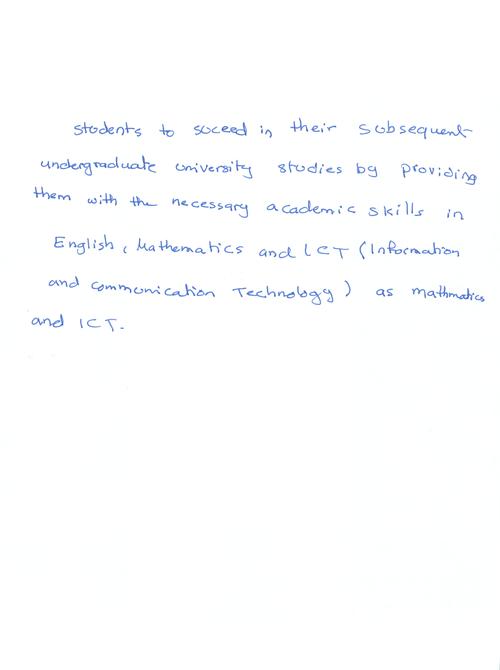 students to suceed in their subsequent
undergraduate university studies by providing
them with the necessary academic skills in
English, Mathematics and ICT (Information
and communication Technology) as mathmatics
and ICT.